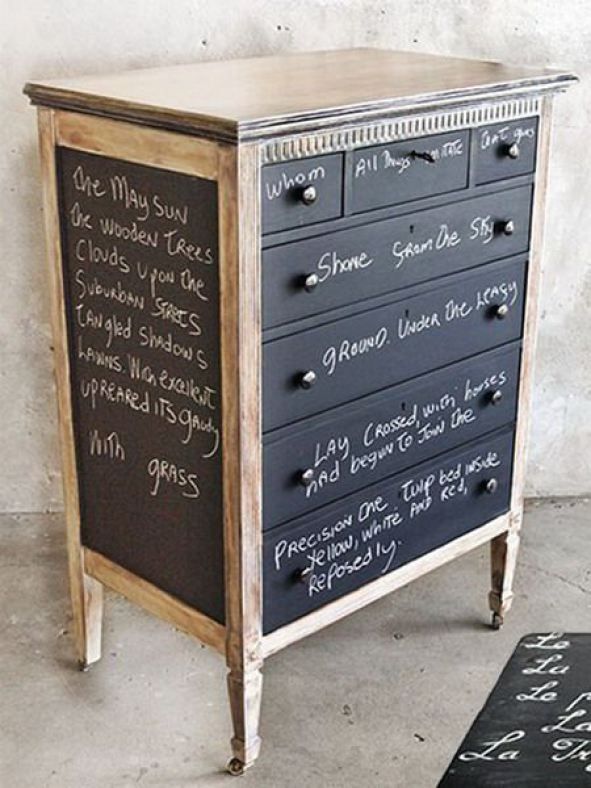 The May Sun
The wooden Trees
Clouds upon the
Suburban Streets
Tangled Shadows
Lawns. With excellent
upreared its gaudy
With grass
whom
All Things imitate
That goes
Shone from the Sky
ground. Under the leafy
Lay Crossed, with horses
had begun to Join the
Precision The Tulip bed inside
Yellow, white and Red,
Reposedly.
Le
La
Le
La
La